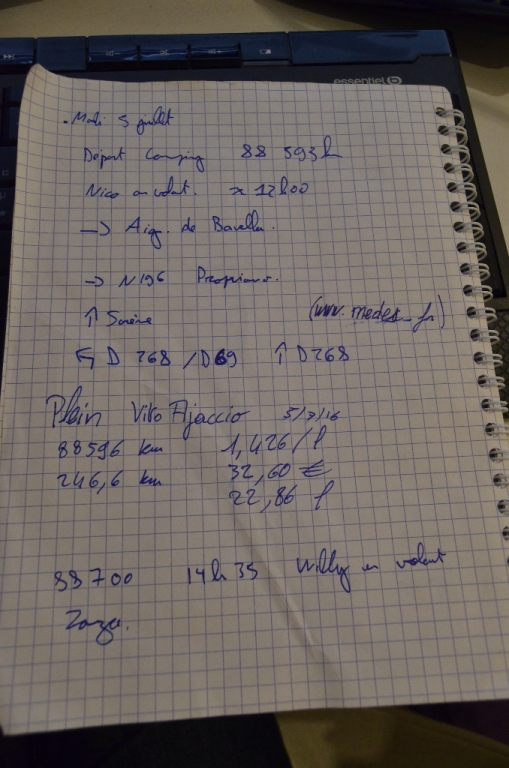 essentiel b
. Mardi 5 juillet
Départ Camping 88 593 k
Nico au volant. ≈ 12h00
→ Aig. de Bavella.
→ N196 Propriano.
↑ Sartène (www.medes fr)
↰ D 268 / D69 ↑ D268
Plein Vito Ajaccio 5/7/16
88596 km 1,426 / l
246,6 km 32,60 €
22,86 l
88700 14h35 Willy au volant
Zonza.